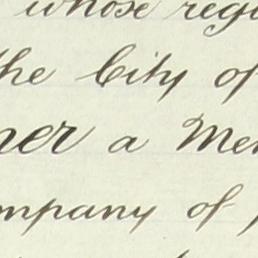 whose regi
the City of
ner a Mem
ompany of